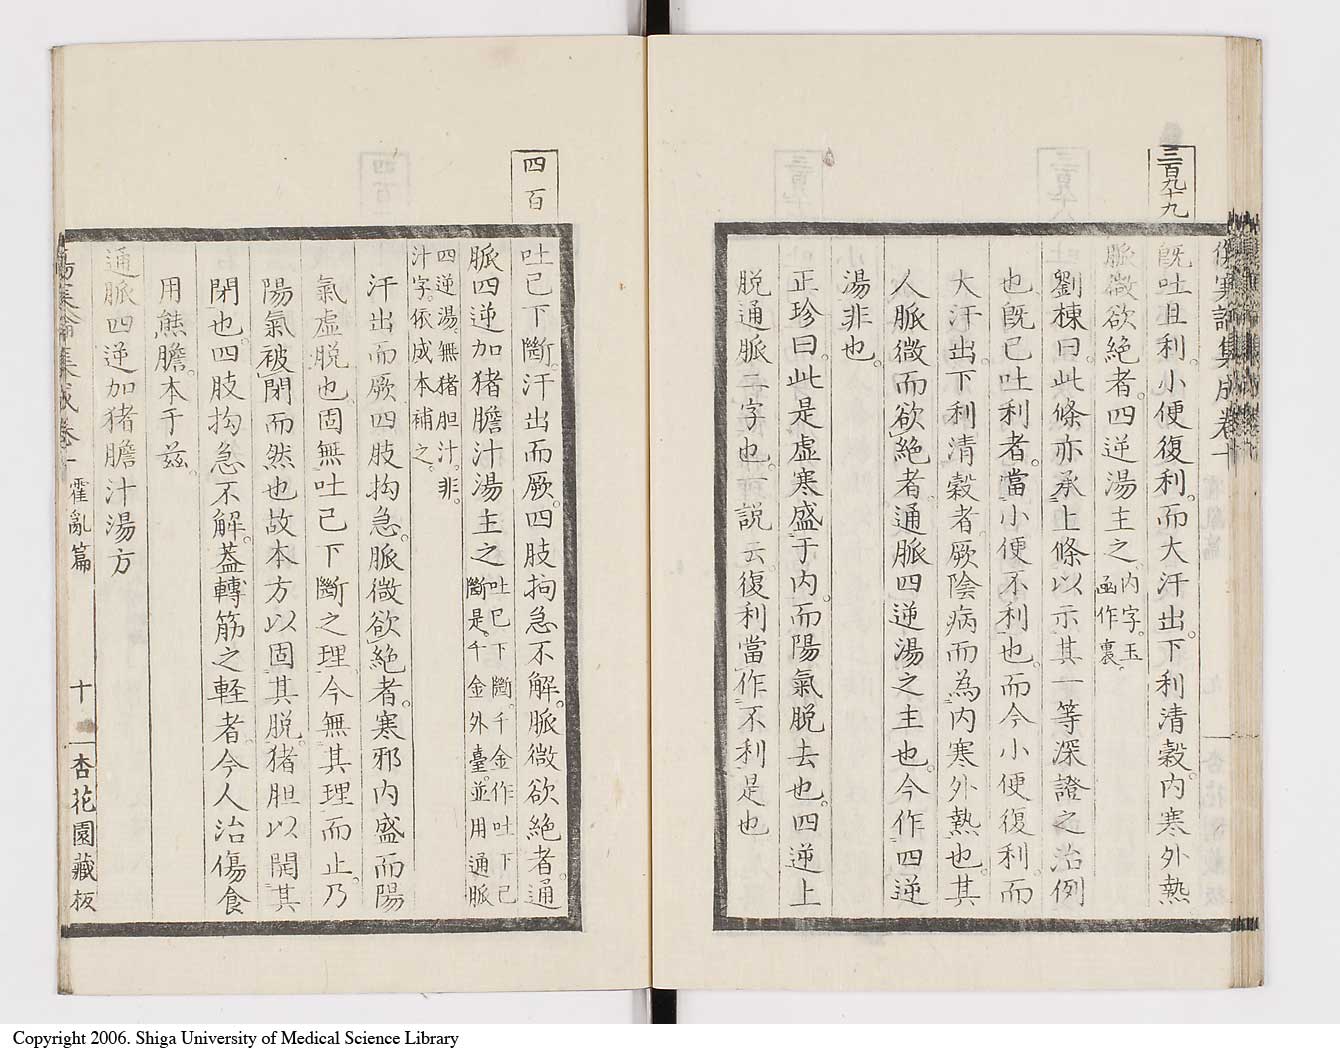 三百九十九
既吐且利。小便復利。而大汗出。下利清穀。內寒外熱
脈微欲絶者。四逆湯主之。內字。玉
函作裏。
劉棟曰。此條亦承上條以示其一等深證之治例
也。既已吐利者。當小便不利也。而今小便復利。而
大汗出。下利清穀者。厥陰病而為內寒外熱也。其
人脈微而欲絶者。通脈四逆湯之主也。今作四逆
湯非也。
正珍曰。此是虛寒盛于內。而陽氣脱去也。四逆上
脱通脈二字也。説云。復利當作不利是也
四百
吐已下斷。汗出而厥。四肢拘急不解。脈微欲絶者。通
脈四逆加猪膽汁湯主之 吐已下斷。千金作吐下已
斷是。千金外臺。並用通脈
四逆湯。無猪胆汁。非。
汁字。依成本補之。
汗出而厥四肢拘急。脈微欲絶者。寒邪內盛而陽
氣虛脱也。固無吐已下斷之理。今無其理而止。乃
陽氣被閉而然也。故本方以固其脱。猪胆以開其
閉也。四肢拘急不解。蓋轉筋之輕者。今人治傷食
用熊膽。本于茲。
通脈四逆加猪膽汁湯方
霍亂篇
十一
杏花園藏板
Copyright 2006. Shiga University of Medical Science Library